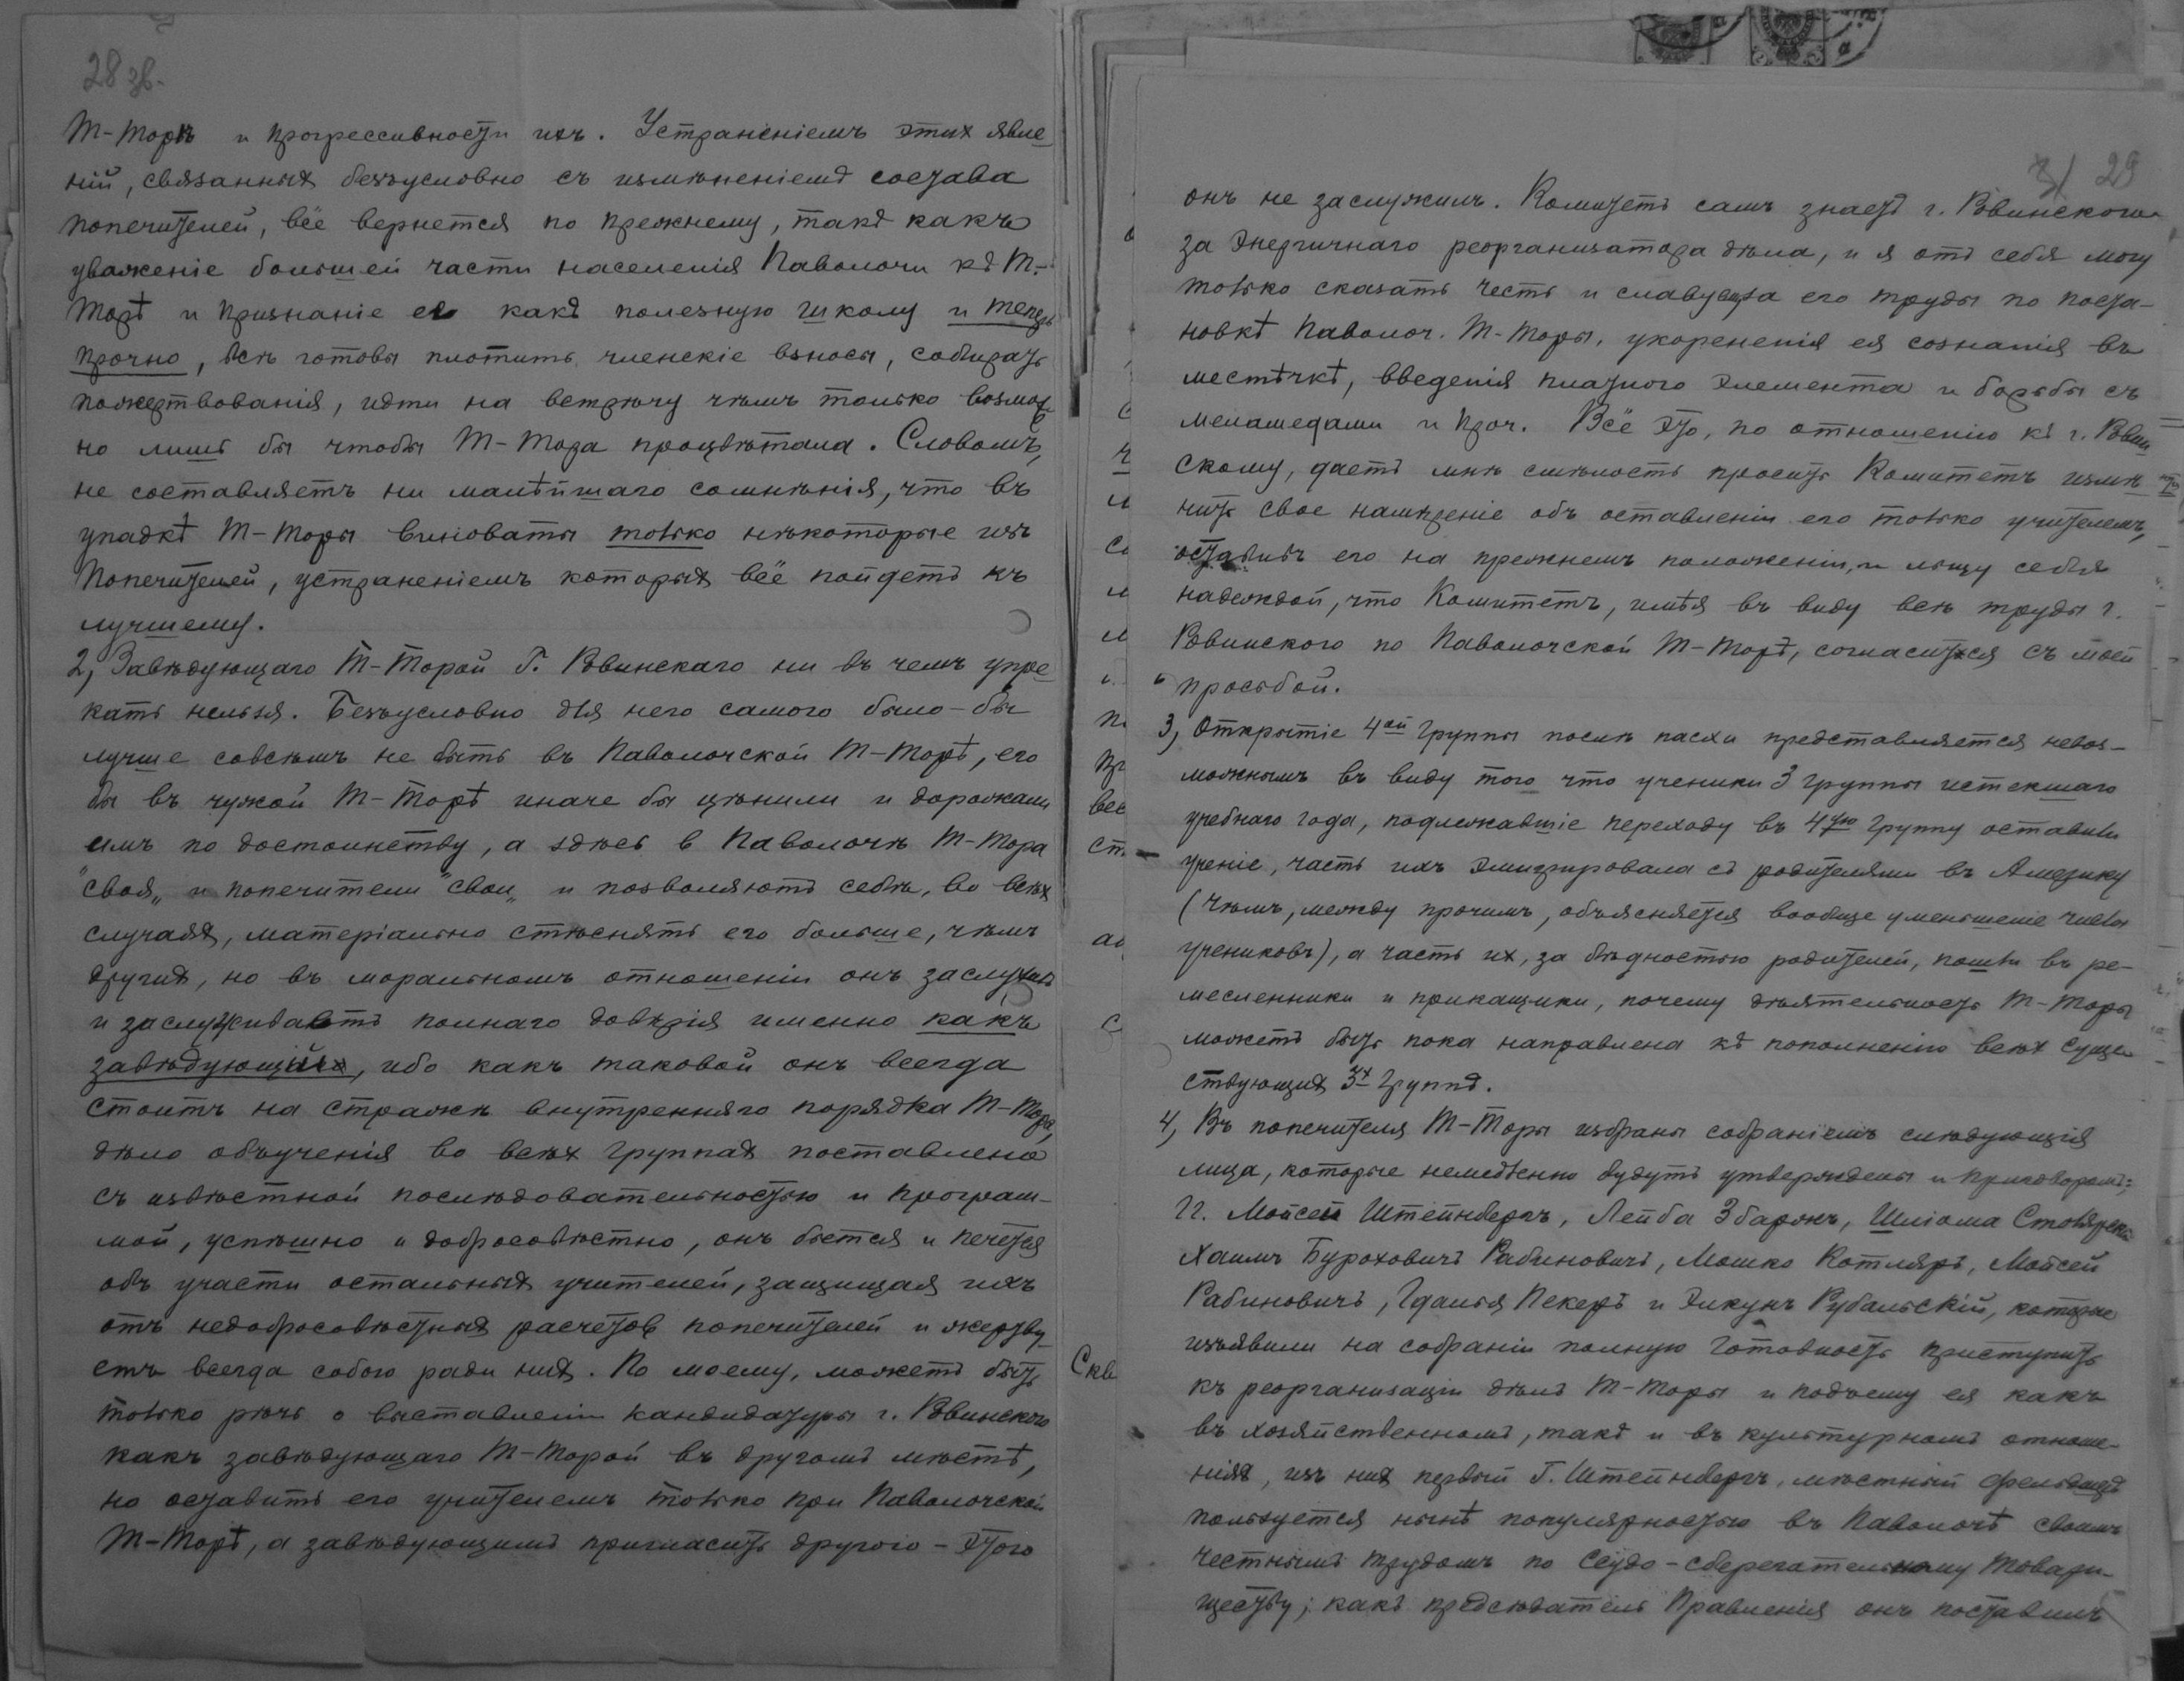 28 зв.
Т-Торѣ и прогрессивности ихъ. Устраненіемъ этих явле
ній, связанных безъусловно съ измѣненіемъ состава
попечителей, всё вернется по прежнему, такъ какъ
уваженіе большей части населенія Паволочи къ Т.-
Торѣ и признаніе ея какъ полезную школу и теперь
прочно, всѣ готовы плотить членскіе взносы, собирать
пожертвованія, идти на встрѣчу чѣмъ только возмож
но лишь бы чтобы Т-Тора процвѣтала. Словомъ,
не составляетъ ни малѣйшаго сомнѣнія, что въ
упадкѣ Т-Торы виноваты только нѣкоторые изъ
Попечителей, устраненіемъ которых всё пойдетъ къ
лучшему.
2, Завѣдующаго Т-Торой Г. Ровинскаго ни въ чемъ упре
кать нельзя. Безъусловно для него самого было-бы
лучше совсѣмъ не быть въ Паволочской Т-Торѣ, его
бы въ чужой Т-Торѣ иначе бы цѣнили и дорожали
имъ по достоинству, а здѣсь в Паволочѣ Т-Тора
"своя" и попечители "свои" и позволяютъ себѣ, во всѣх
случаях, матеріально стѣснять его больше, чѣмъ
других, но въ моральномъ отношеніи онъ заслужил
и заслуживаетъ полнаго довѣрія именно какъ
завѣдующій, ибо какъ таковой онъ всегда
стоитъ на стражѣ внутренняго порядка Т-Торы,
дѣло обученія во всѣх группах поставлено
съ извѣстной послѣдовательностью и програм-
мой, успѣшно и добросовѣстно, онъ бьется и печется
объ участи остальных учителей, защищая ихъ
отъ недобросовѣстных расчетов попечителей и жертву-
етъ всегда собою ради них. По моему, можетъ быть
только рѣчь о выставленіи кандидатуры г. Ровинского
какъ завѣдующаго Т-Торой въ другомъ мѣстѣ,
но оставить его учителемъ только при Паволочской
Т-Торѣ, а завѣдующимъ пригласить другого - этого
29
онъ не заслужилъ. Комитетъ самъ знаетъ г. Ровинского
за энергичнаго реорганизатора дѣла, и я отъ себя могу
только сказать честь и славу за его труды по поста-
новкѣ Паволоч. Т-Торы, укорененія ея сознанія въ
местѣчкѣ, введенія платного элемента и борьбы съ
меламедами и проч. Всё это, по отношенію къ г. Ровин
скому, даетъ мнѣ смѣлость просить Комитетъ измѣ
нить свое намѣреніе объ оставленіи его только учителемъ,
оставить его на прежнемъ положеніи, и льщу себя
надеждой, что Комитетъ, имѣя въ виду всѣ труды г.
Ровинского по Паволочской Т-Торѣ, согласится съ моей
просьбой.
3, Открытіе 4ой группы послѣ пасхи представляется невоз-
можнымъ въ виду того что ученики 3 группы истекшаго
учебнаго года, подлежавшіе переходу въ 4ую группу оставили
ученіе, часть ихъ эмигрировала съ родителями въ Америку
(чѣмъ, между прочимъ, объясняется вообще уменьшеніе числа
учениковъ), а часть их, за бѣдностью родителей, пошли въ ре-
месленники и прикащики, почему дѣятельность Т-Торы
можетъ быть пока направлена къ пополненію всѣх суще-
ствующих 3х группъ.
4, Въ попечителя Т-Торы избраны собраніемъ слѣдующія
лица, которые немедленно будутъ утверждены и приговоромъ:
Гг. Мойсей Штейнбергъ, Лейба Збаржъ, Шлiома Столярскій
Хаимъ Буроховичъ Рабиновичъ, Мошко Котляръ, Мойсей
Рабиновичъ, Гдалья Пекеръ и Элкунъ Рубальскій, которые
изъявили на собраніи полную готовность приступить
къ реорганизаціи дѣлъ Т-Торы и подъему ея какъ
въ хозяйственномъ, такъ и въ культурномъ отноше-
ніях, изъ них первый Г. Штейнбергъ, мѣстный фельдшеръ
пользуется нынѣ популярностью въ Паволочѣ своимъ
честнымъ трудомъ по Ссудо-сберегательному товари-
ществу; какъ предсѣдатель Правленія онъ поставилъ